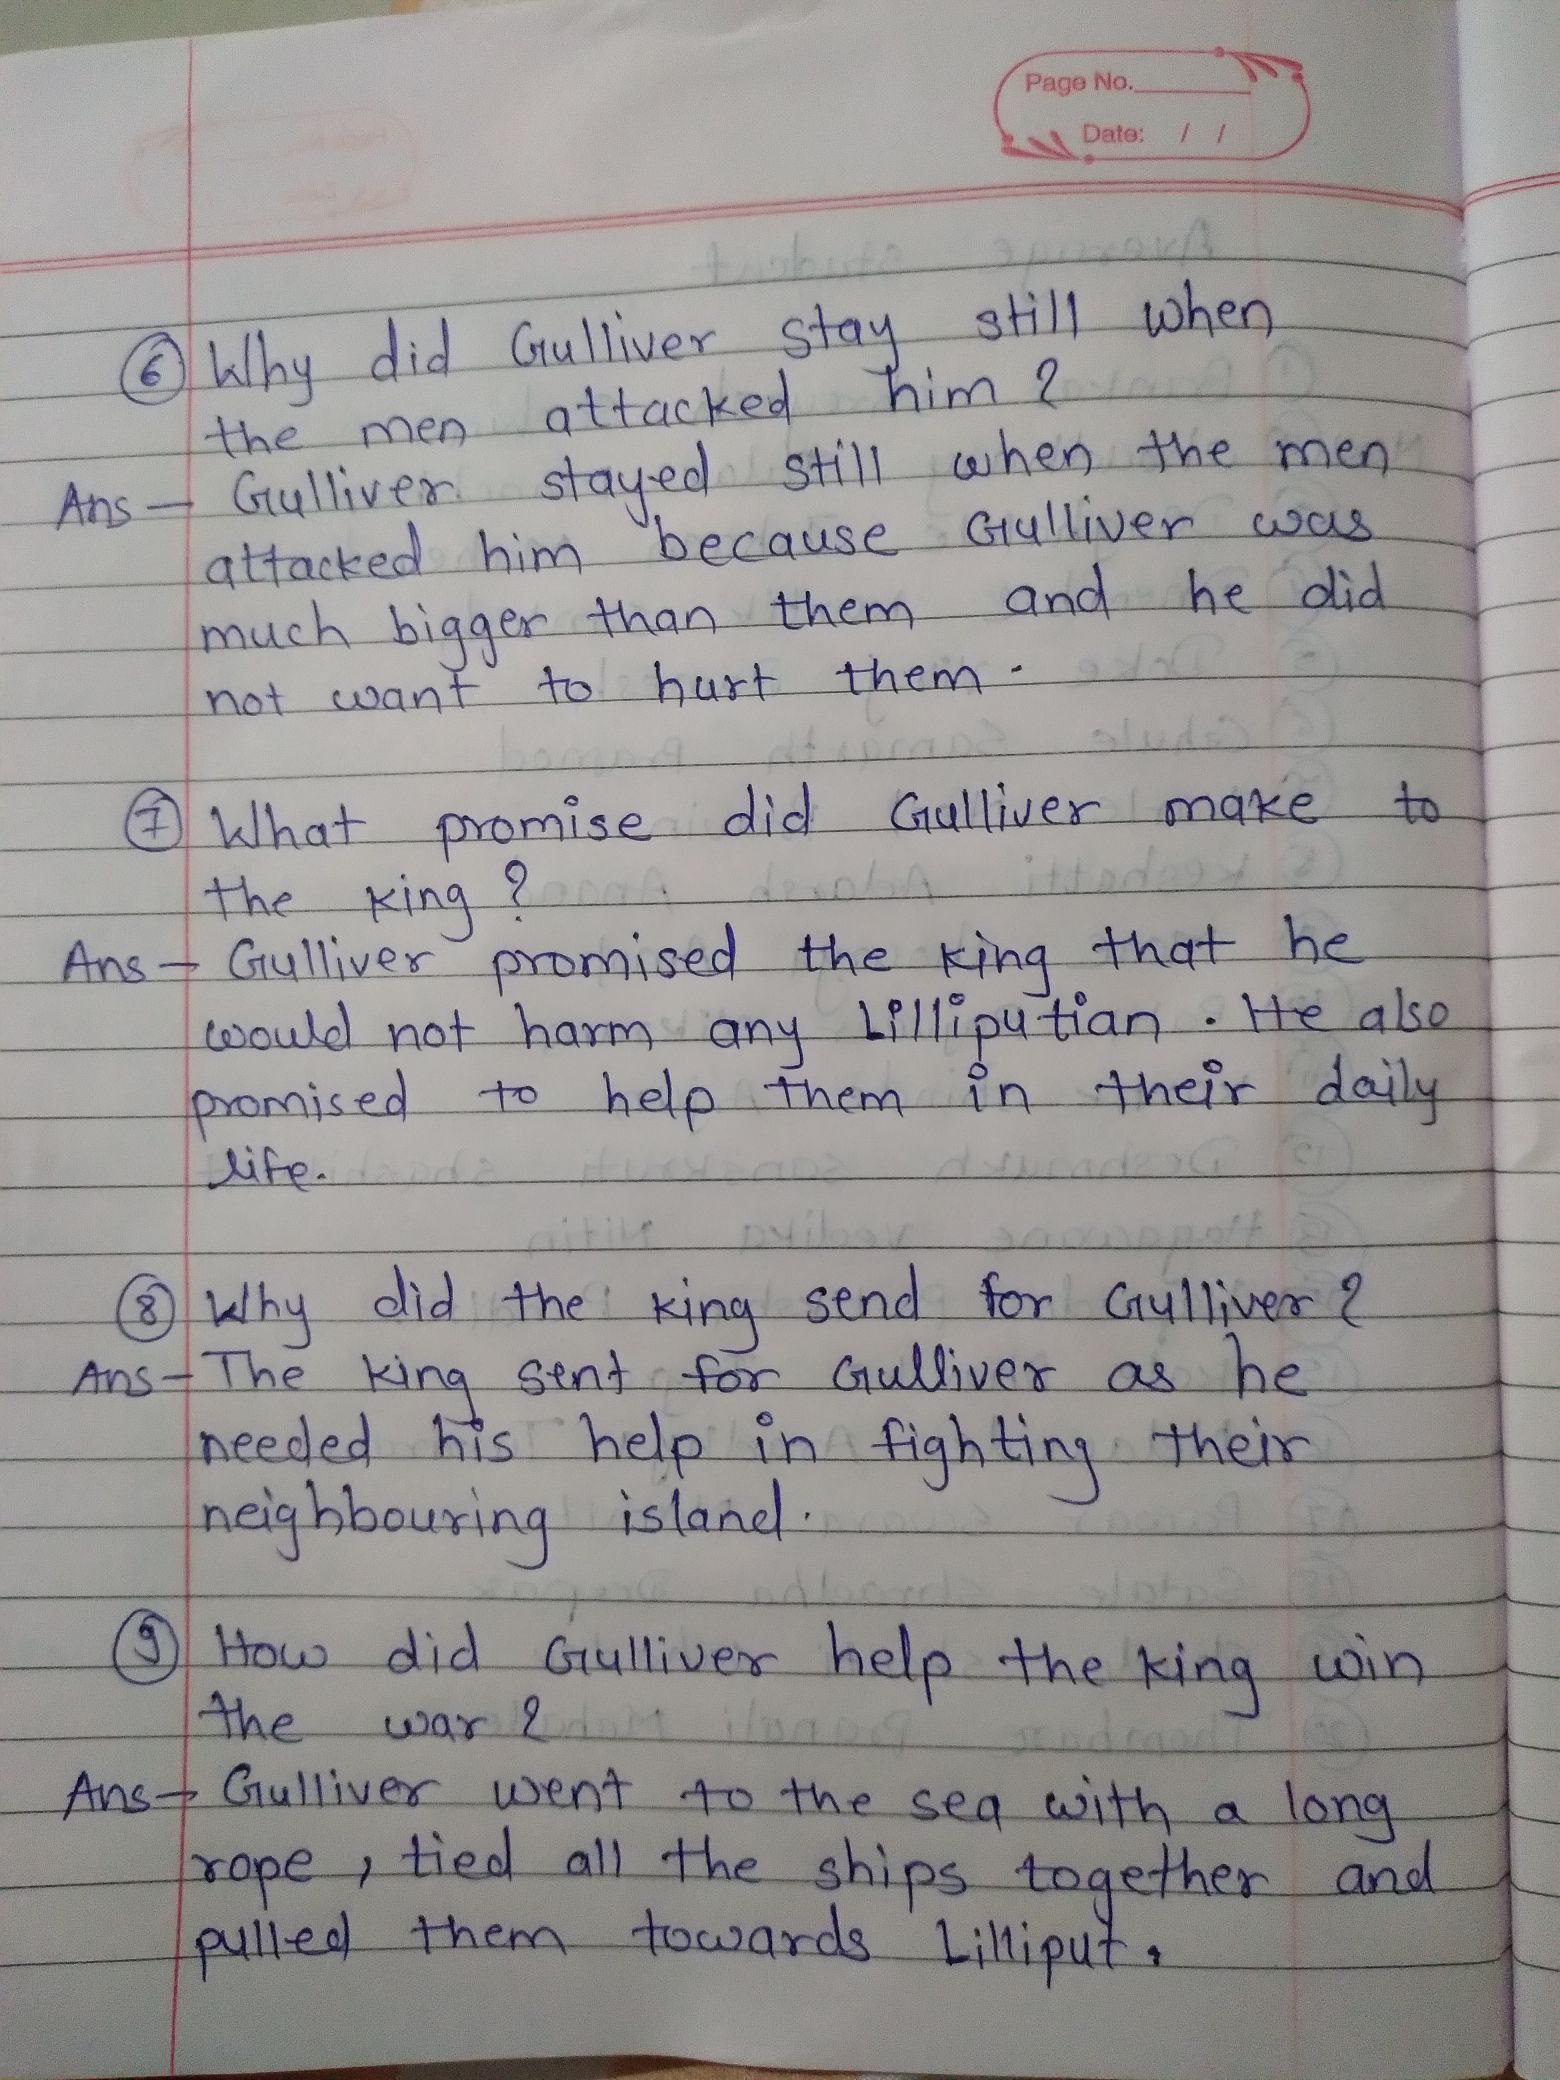 Page No.
Date: / /
⑥ Why did Gulliver stay still when
the men attacked him ?
Ans - Gulliver stayed still when the men
attacked him because Gulliver was
much bigger than them and he did
not want to hurt them.
⑦ What promise did Gulliver make to
the king ?
Ans - Gulliver promised the king that he
would not harm any Lilliputian. He also
promised to help them in their daily
life.
⑧ Why did the king send for Gulliver ?
Ans - The king sent for Gulliver as he
needed his help in fighting their
neighbouring island.
⑨ How did Gulliver help the king win
the war ?
Ans - Gulliver went to the sea with a long
rope, tied all the ships together and
pulled them towards Lilliput.